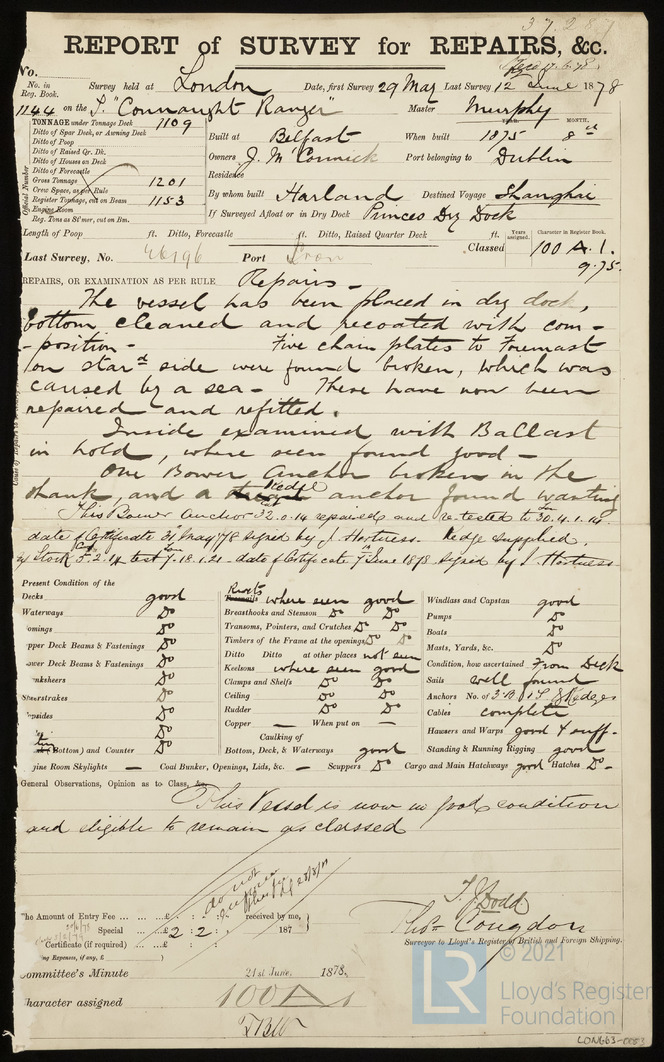 37287
REPORT of SURVEY for REPAIRS, &c.
No.
No. in Reg. Book. Survey held at London Date, first Survey 29 May Last Survey 12 June 1878
1144 on the "Connaught Ranger" Master Murphy
TONNAGE under Tonnage Deck 1109
Ditto of Spar Deck, or Awning Deck
Ditto of Poop
Ditto of Raised Qr. Dk.
Ditto of Houses on Deck
Ditto of Forecastle
Gross Tonnage 1201
Crew Space, as per Rule
Register Tonnage, cut on Beam 1153
Engine Room
Reg. Tons as St'mer, cut on Bm.
Official Number
YEAR. MONTH.
Built at Belfast When built 1875 8
Owners J. McCormick Port belonging to Dublin
Residence
By whom built Harland Destined Voyage Shanghai
If Surveyed Afloat or in Dry Dock Princes Dry Dock
Length of Poop ft. Ditto, Forecastle ft. Ditto, Raised Quarter Deck ft.
Years assigned. Character in Register Book.
Last Survey, No. 46196 Port Classed 100 A. 1.
9.75.
REPAIRS, OR EXAMINATION AS PER RULE Repairs -
The vessel has been placed in dry dock,
bottom cleaned and recoated with com-
-position - Five chain plates to Foremast
on stard side were found broken, which was
caused by a sea - These have now been
repaired and refitted.
Inside examined with Ballast
in hold, where seen found good -
One Bower Anchor broken in the
shank, and a Kedge anchor found wanting
This Bower Anchor 32.0.14 repaired and re-tested to 30.4.1.14.
date of Certificate 31 May 78 signed by J. Hartness. Kedge supplied,
Stock 5.2.14 test 7.18.1.21 - date of Certificate 7th June 1878 signed by J. Hartness
Present Condition of the
Decks good
Waterways Do
omings Do
pper Deck Beams & Fastenings Do
ower Deck Beams & Fastenings Do
nksheers Do
Sheerstrakes Do
opsides Do
Do
Bottom) and Counter Do
Rivets where seen good
Breasthooks and Stemson Do Do
Transoms, Pointers, and Crutches Do Do
Timbers of the Frame at the openings Do Do
Ditto Ditto at other places not seen
Keelsons where seen good
Clamps and Shelfs Do Do
Ceiling Do Do
Rudder Do Do
Copper — When put on —
Caulking of
Bottom, Deck, & Waterways good
Windlass and Capstan good
Pumps Do
Boats Do
Masts, Yards, &c. Do
Condition, how ascertained From Deck
Sails well found
Anchors No. of 3 B. 1 S. Kedges
Cables complete
Hawsers and Warps good & suff.
Standing & Running Rigging good
gine Room Skylights — Coal Bunker, Openings, Lids, &c. — Scuppers Do Cargo and Main Hatchways good Hatches Do -
General Observations, Opinion as to Class, &c.
This Vessel is now in good condition
and eligible to remain as classed
The Amount of Entry Fee ... ... ...£ : : received by me,
Special ... ...£ 2 : 2 : 187
Certificate (if required) ...£ : :
ng Expenses, if any, £ )
T. J. Dodd
Thos Congdon
Surveyor to Lloyd's Register of British and Foreign Shipping.
Committee's Minute 21st June, 1878.
Character assigned 100 A 1
© 2021
LR
Lloyd's Register
Foundation
LON663-0053